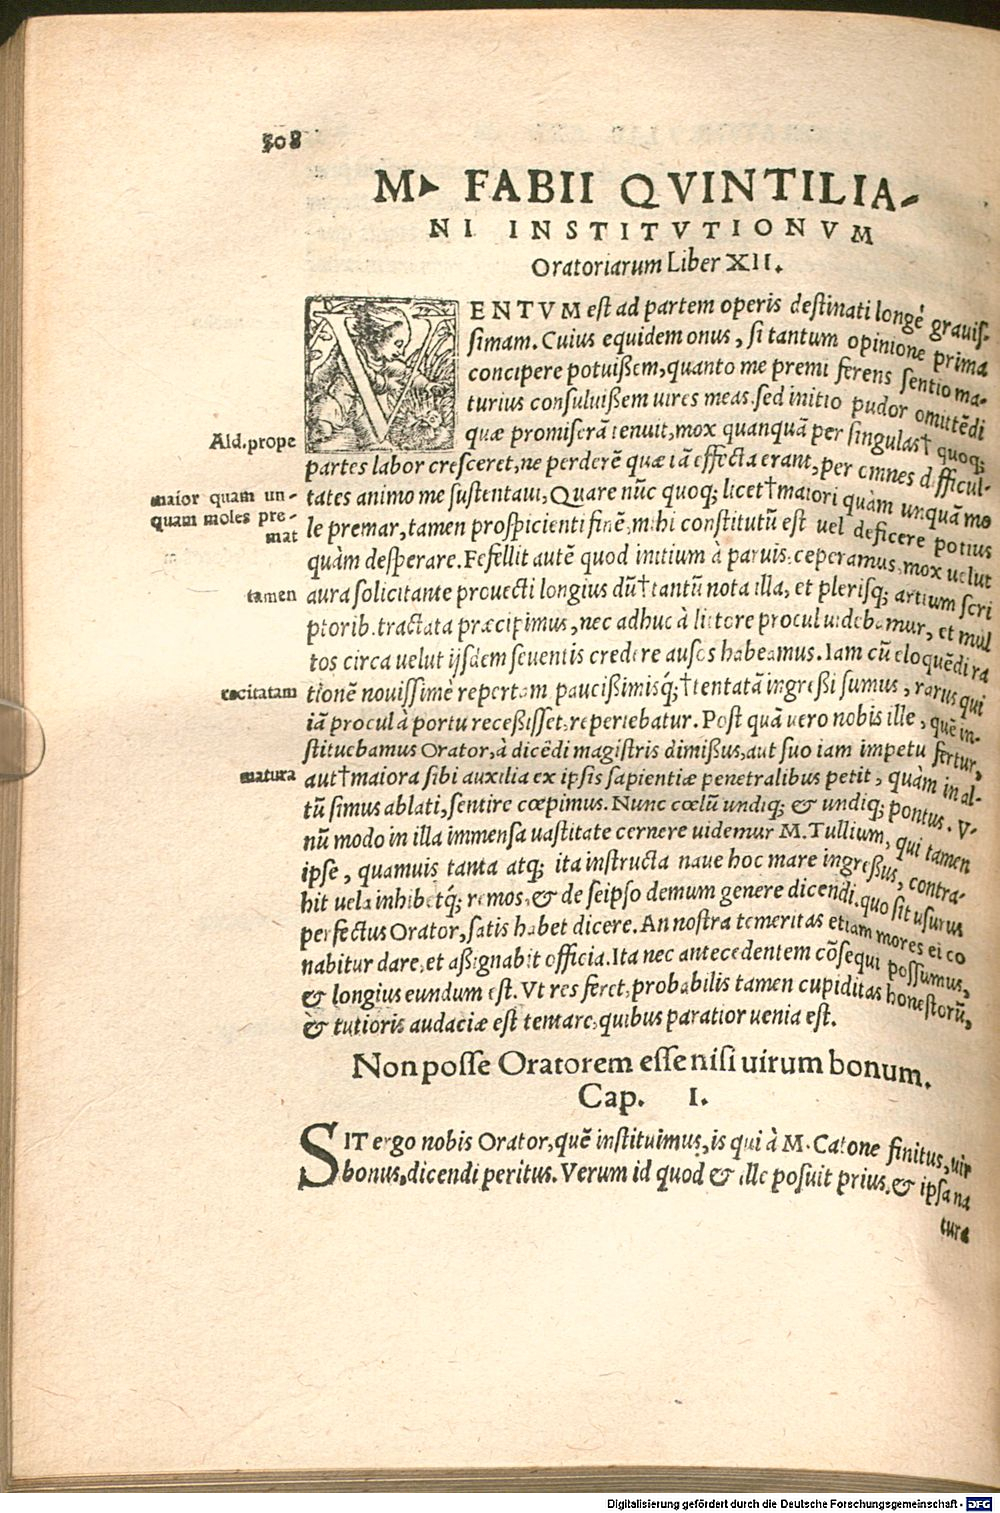 308
M. FABII QVINTILIA-
NI INSTITVTIONVM
Oratoriarum Liber XII.
VENTVM est ad partem operis destinati longè grauiſ-
ſimam. Cuius equidem onus, ſi tantum opinione prima
concipere potuiſſem, quanto me premi ferens ſentio ma-
turius conſuluiſſem uires meas. ſed initio pudor omittēdi
quæ promiſerā tenuit, mox quanquā per ſingulas† quoq;
Ald. prope
partes labor creſceret, ne perderē quæ iā effecta erant, per omnes difficul-
tates animo me ſuſtentaui, Quare nūc quoq; licet† maiori quàm unquā mo
maior quam un-
quam moles pre-
mat
le premar, tamen proſpicienti finē, mihi conſtitutū eſt uel deficere potius
quàm deſperare. Fefellit autē quod initium à paruis ceperamus, mox uelut
aura ſolicitante prouecti longius dū† tantū nota illa, et pleriſq; artium ſcri
tamen
ptorib. tractata præcipimus, nec adhuc à littore procul uidebamur, et mul
tos circa uelut ijſdem ſeuentis credere auſos habeamus. Iam cū eloquēdi ra
tionē nouiſſimè repertam pauciſſimisq́; † tentatā ingreſſi ſumus, rarus qui
excitatam
iā procul à portu receſſiſſet, reperiebatur. Poſt quā uero nobis ille, quē in-
ſtituebamus Orator, à dicēdi magiſtris dimiſſus, aut ſuo iam impetu fertur,
aut† maiora ſibi auxilia ex ipſis ſapientiæ penetralibus petit, quàm in al-
matura
tū ſimus ablati, ſentire cœpimus. Nunc cœlū undiq; & undiq; pontus. V-
nū modo in illa immenſa uaſtitate cernere uidemur M. Tullium, qui tamen
ipſe, quamuis tanta atq; ita inſtructa naue hoc mare ingreſſus, contra-
hit uela inhibetq́; remos, & de ſeipſo demum genere dicendi. quo ſit uſurus
perfectus Orator, ſatis habet dicere. An noſtra temeritas etiam mores ei co
nabitur dare, et aſſignabit officia. Ita nec antecedentem cōſequi poſſumus,
& longius eundum eſt. Vt res feret, probabilis tamen cupiditas honeſtorū,
& tutioris audaciæ eſt tentare, quibus paratior uenia eſt.
Non poſſe Oratorem eſſe niſi uirum bonum.
Cap. I.
SIT ergo nobis Orator, quē inſtituimus, is qui à M. Catone finitus, uir
bonus, dicendi peritus. Verum id quod & ille poſuit prius, & ipſa na
tura
Digitalisierung gefördert durch die Deutsche Forschungsgemeinschaft - DFG